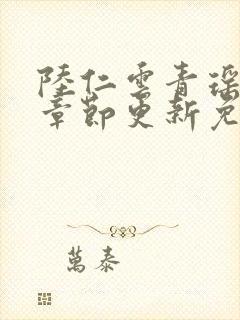 陸仁雲青瑶
章節更新免
萬泰